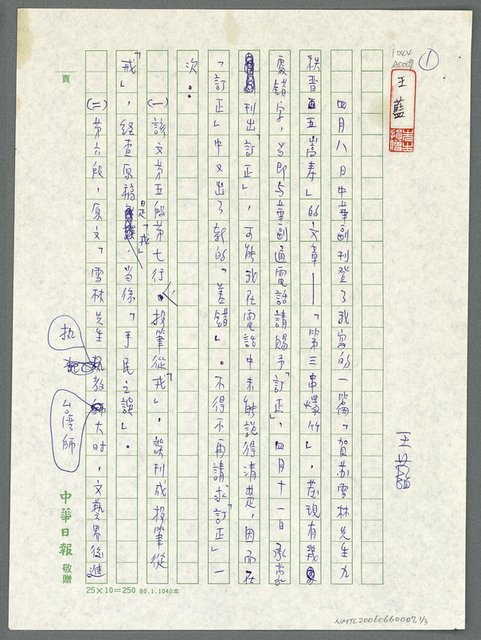 ①
1044
A0009
王藍
王藍
四月八日中華副刊登了我寫的一篇「賀蘇雪林先生九
秩晉五嵩壽」的文章——「第三串爆竹」，發現有幾
處錯字，當即与華副通電話請賜予「訂正」，四月十一日承蒙
刊出「訂正」，可能我在電話中未能說得清楚，因而在
「訂正」中又出了新的「差錯」。不得不再請求「訂正」一
次：
(一)該文第五段第七行「投筆從戎」，誤刊成投筆從
「戒」，經查原稿是「戎」，當係「手民之誤」。
(二)第六段，原文「雪林先生執教台灣師大時，文藝界後進
頁
中華日報 敬贈
25×10=250 80.1.1040本
NMTL20060660007 1/3